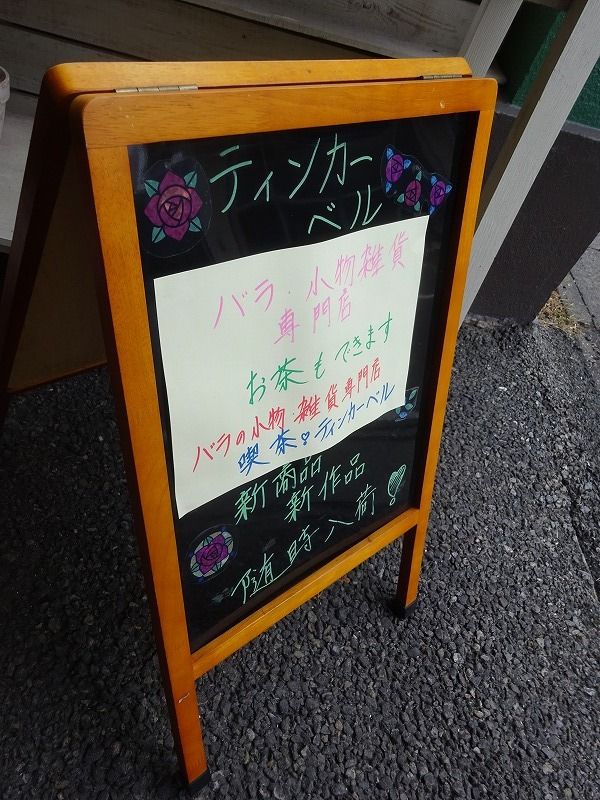 ティンカー
ベル
バラ・小物雑貨
専門店
お茶もできます
バラの小物・雑貨専門店
喫茶♡ティンカーベル
新商品
新作品
随時入荷!